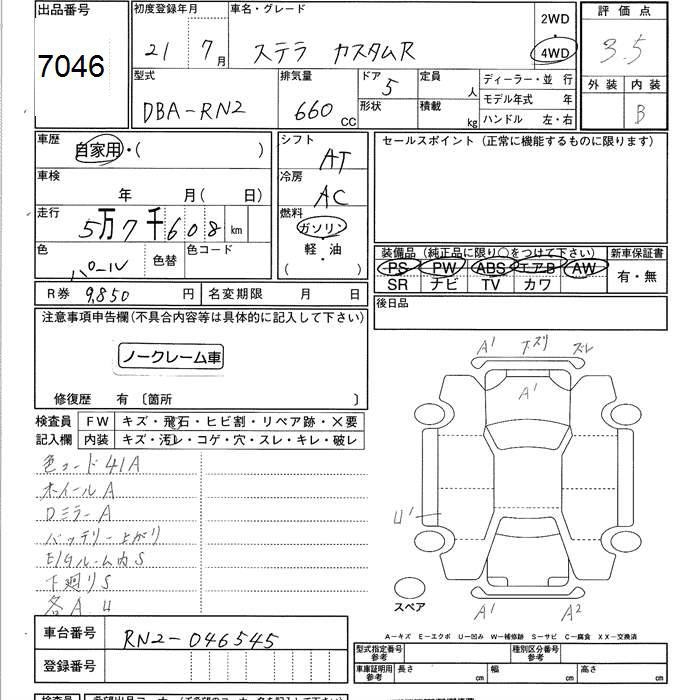 出品番号 初度登録年月 車名・グレード 2WD 評価点
7046 21 7月 ステラ カスタムR 4WD 3.5
型式 排気量 ドア 定員 ディーラー・並 行 外装 内装
DBA-RN2 660 CC 5 人 モデル年式 年 B
形状 積載 kg ハンドル 左・右
車歴 自家用・( ) シフト AT セールスポイント (正常に機能するものに限ります)
車検 年 月( 日) 冷房 AC
走行 5万7千608 km 燃料 ガソリン
色 パール 色替 色コード 軽・油
( )
装備品 (純正品に限り○をつけて下さい) 新車保証書
PS PW ABS エアB AW 有・無
SR ナビ TV カワ
R券 9,850 円 名変期限 月 日 後日品
注意事項申告欄(不具合内容等は具体的に記入して下さい)
ノークレーム車
修復歴 有 〔箇所 〕
検査員 FW キズ・飛石・ヒビ割・リペア跡・×要
記入欄 内装 キズ・汚レ・コゲ・穴・スレ・キレ・破レ
色コード41A
ホイールA
DミラーA
バッテリー上がり
E/Gルーム内S
下廻りS
各A U
A1 下ズリ ズレ
A1
U1
A1 A2
スペア
A-キズ E-エクボ U-凹み W-補修跡 S-サビ C-腐食 XX-交換済
車台番号 RN2-046545
登録番号
型式指定番号 参考 種別区分番号 参考
車庫証明用 参考 長さ cm 幅 cm 高さ cm